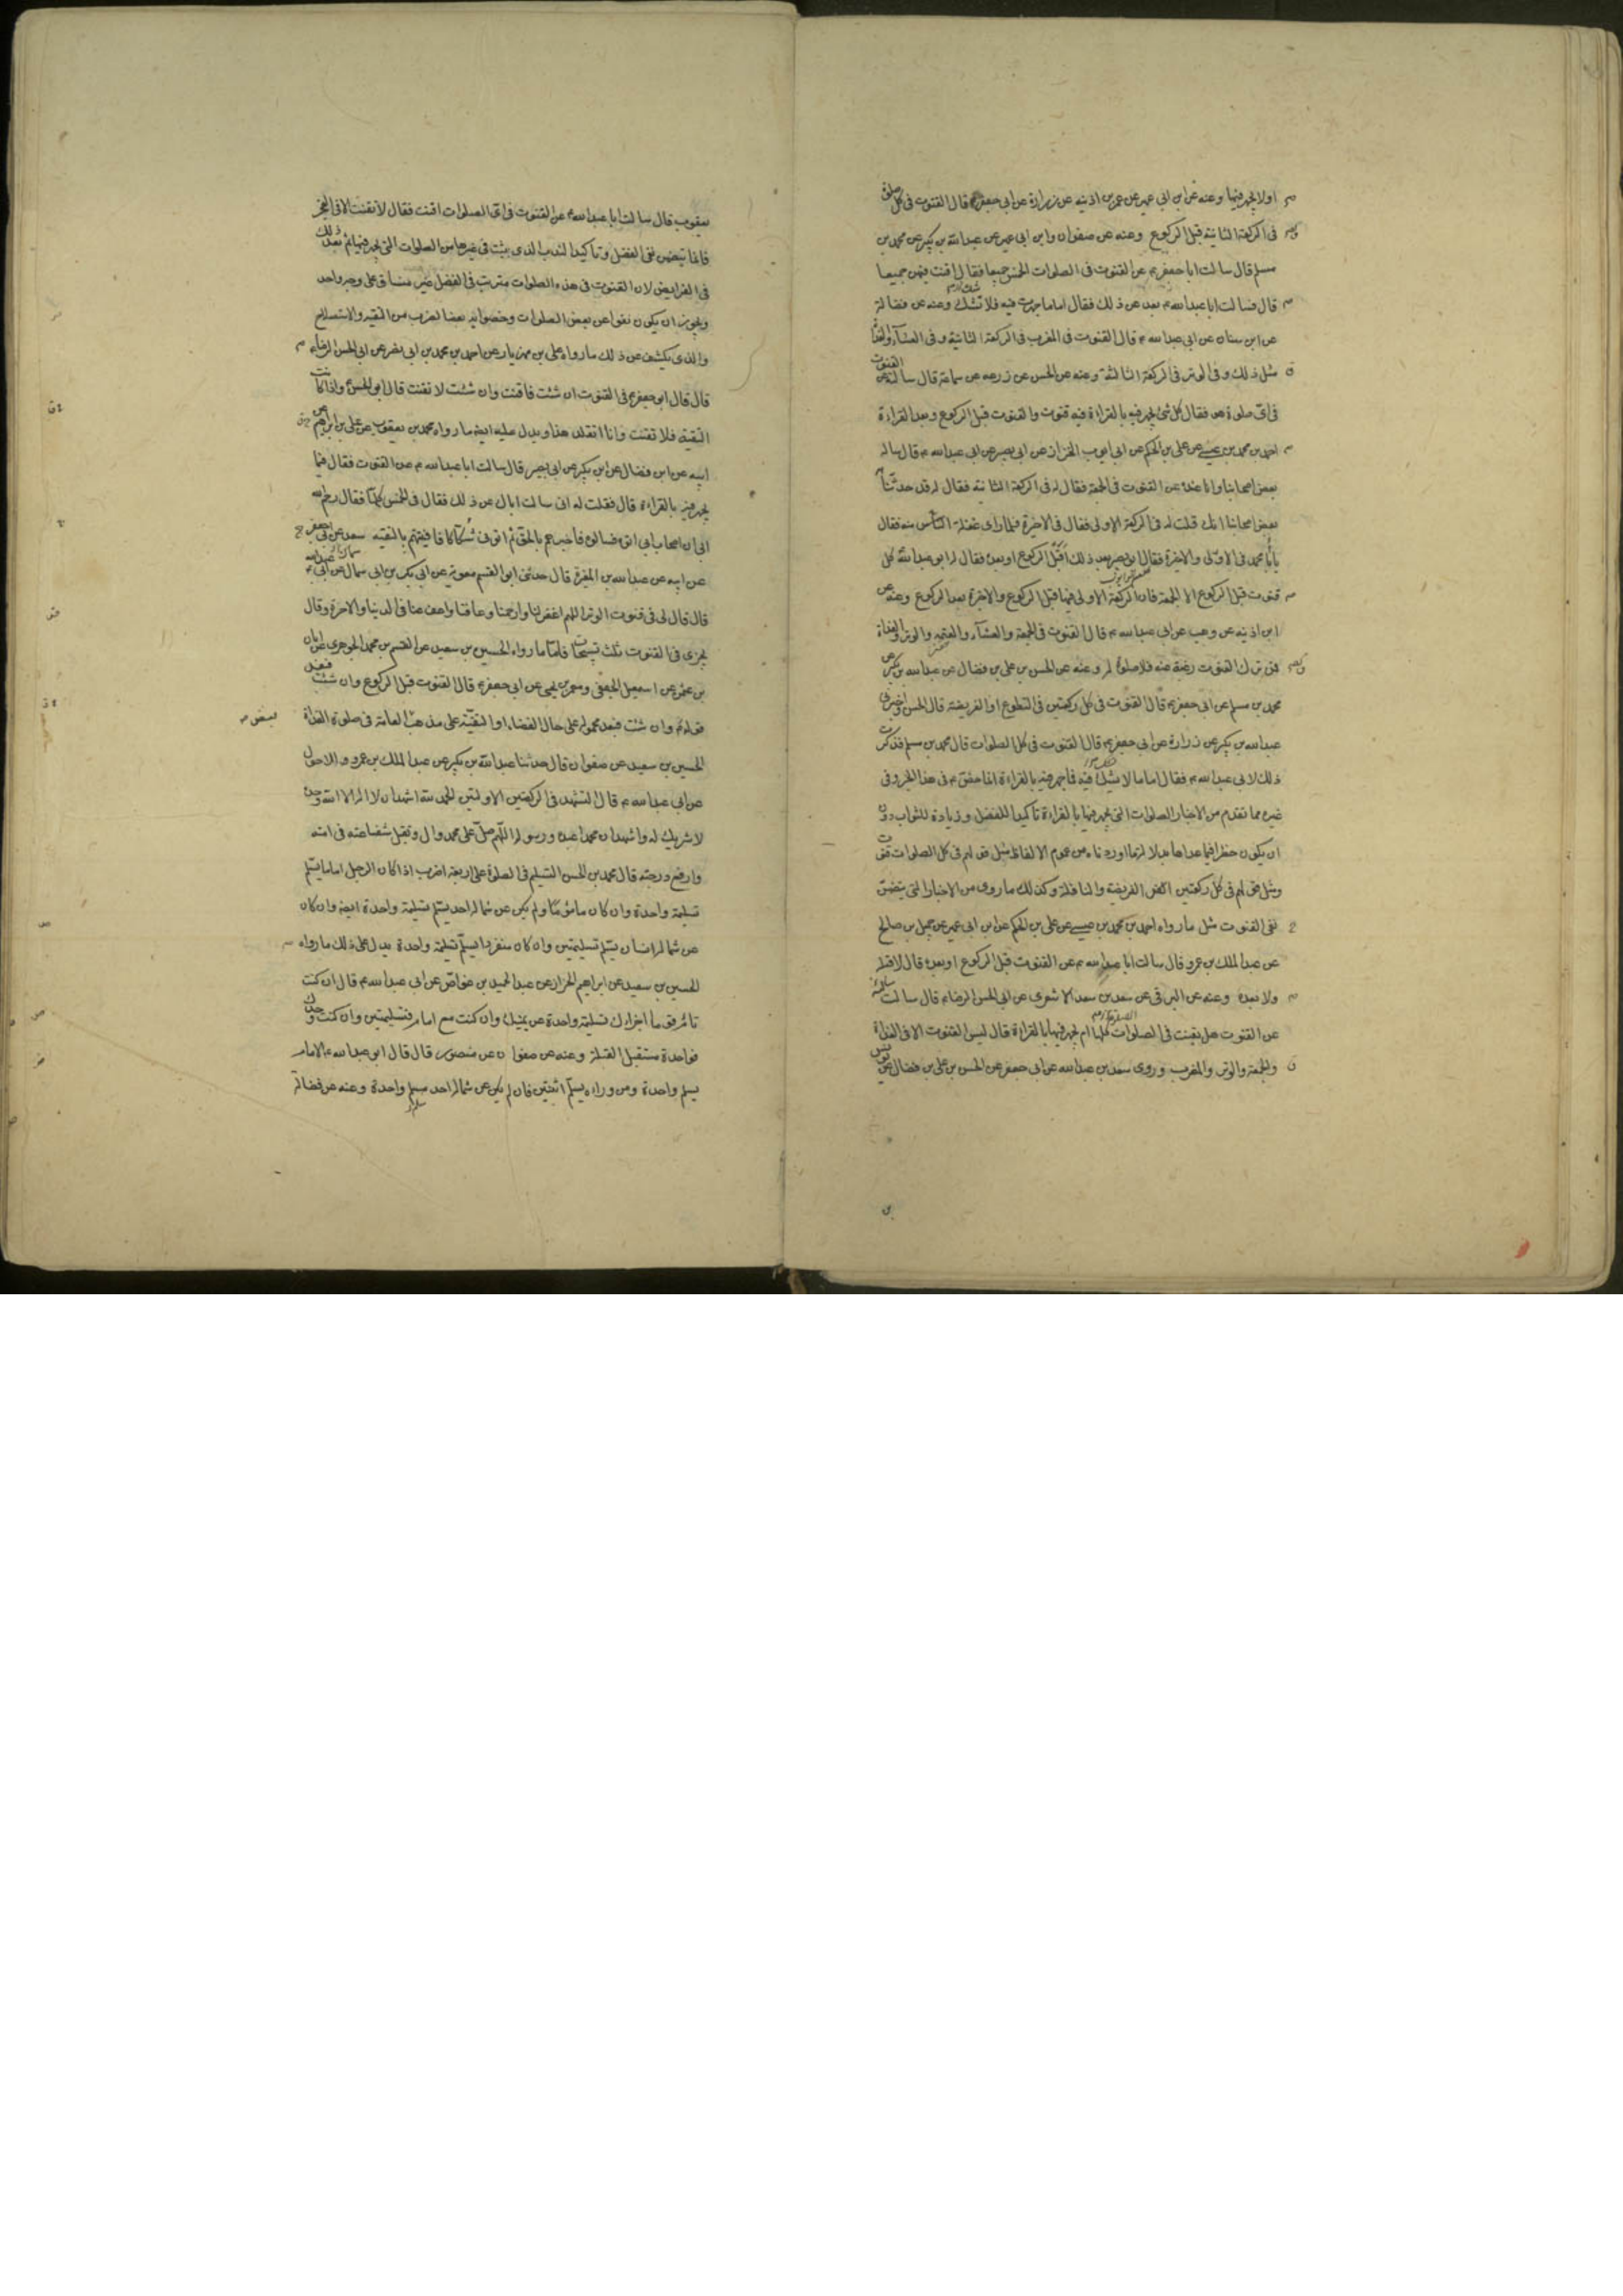 او لا يجهر فيها وعنه عن ابن ابي عمير عن عمر بن اذينه عن زرارة عن ابي جعفر ع قال القنوت في كل صلوة
في الركعة الثانية قبل الركوع وعنه عن صفوان وابن ابي عمير عن عبدالله بن بكير عن محمد بن
مسلم قال سالت ابا جعفر ع عن القنوت في الصلوات الخمس جميعا فقال اقنت فيهن جميعا
قال فسالت ابا عبدالله ع بعد عن ذلك فقال اما ما جهرت فيه فلا تشك وعنه عن فضالة
عن ابن سنان عن ابي عبدالله ع قال القنوت في المغرب في الركعة الثانية وفي العشآء والغداة
مثل ذلك وفي الوتر في الركعة الثالثة وعنه عن الحسن عن زرعه عن سماعة قال سالته عن القنوت
في اي صلوة هو فقال كل شئ يجهر فيه بالقراءة فيه قنوت والقنوت قبل الركوع وبعد القراءة
احمد بن محمد بن عيسى عن علي بن الحكم عن ابي ايوب الخزاز عن ابي بصير عن ابي عبدالله ع قال ساله
بعض اصحابنا وانا عنده عن القنوت في الجمعة فقال له في الركعة الثانية فقال له قد حدثنا
بعض اصحابنا انك قلت له في الركعة الاولى فقال في الاخيرة فلما راى غفلة الناس منه فقال
يابا محمد في الاولى والاخيرة فقال ابو بصير بعد ذلك اقبل الركوع او بعده فقال له ابو عبدالله كل
قنوت قبل الركوع الا الجمعة فان الركعة الاولى فيها قبل الركوع والاخرة بعد الركوع وعنه عن
ابن اذينه عن وهب عن ابي عبدالله ع قال القنوت في الجمعة والعشآء والعتمه والوتر والغداة
فمن ترك القنوت رغبة عنه فلا صلوة له وعنه عن الحسن بن علي بن فضال عن عبدالله بن بكير عن
محمد بن مسلم عن ابي جعفر ع قال القنوت في كل ركعتين في التطوع او الفريضة قال الحسن واخبرني
عبدالله بن بكير عن زرارة عن ابي جعفر ع قال القنوت في كل الصلوات قال محمد بن مسلم فذكرت
ذلك لابي عبدالله ع فقال اما ما لا يشك فيه فما جهر فيه بالقراءة انما خص ع في هذا الخبر وفي
غيره مما تقدم من الاخبار الصلوات التي يجهر فيها بالقراءة تاكيدا للفضل وزيادة للثواب دون
ان يكون حظرا فيما عداها بدلالة ما اوردناه من عموم الالفاظ مثل قولهم في كل الصلوات قنوت
ومثل قولهم في كل ركعتين الفريضة والنافلة وكذلك ما روي من الاخبار التي يتضمن
نفي القنوت مثل ما رواه احمد بن محمد بن عيسى عن علي بن الحكم عن ابن ابي عمير عن جميل بن صالح
عن عبد الملك بن عمرو قال سالت ابا عبدالله ع عن القنوت قبل الركوع او بعده قال لا قبله
ولا بعده وعنه عن البرقي عن سعد بن سعد الاشعري عن ابي الحسن الرضا ع قال سالته
عن القنوت هل يقنت في الصلوات كلها ام يجهر فيها بالقراءة قال ليس القنوت الا في الغداة
والجمعة والوتر والمغرب وروى سعد بن عبدالله عن ابي جعفر عن الحسن بن علي بن فضال عن يونس
يعقوب قال سالت ابا عبدالله ع عن القنوت في اي الصلوات اقنت فقال لا تقنت الا في الفجر
فانما تيضمن نفي الفضل وتاكيد الندب الذي يثبت في غيرها من الصلوات التي يجهر فيها ثم بعد ذلك
في الفرايض لان القنوت في هذه الصلوات مترتب في الفضل غير متساق على وجه واحد
ويجوز ان يكون نفوا عن بعض الصلوات وخصوا به بعضا لضرب من التقيه والاستصلاح
والذي يكشف عن ذلك ما رواه علي بن مهزيار عن احمد بن محمد بن ابي نصر عن ابي الحسن الرضا ع
قال قال ابو جعفر ع في القنوت ان شئت فاقنت وان شئت لا تقنت قال ابو الحسن ع واذا كانت
التقية فلا تقنت وانا اتقلد هذا ويدل عليه ايضا ما رواه محمد بن يعقوب عن علي بن ابراهيم عن
ابيه عن ابن فضال عن ابن بكير عن ابي بصير قال سالت ابا عبدالله ع عن القنوت فقال فيما
يجهر فيه بالقراءة قال فقلت له اني سالت اباك عن ذلك فقال في الخمس كلها فقال رحم الله
ابي ان اصحاب ابي اتوه فسالوه فاخبرهم بالحق ثم اتوني شكاكا فافيتهم بالتقيه سعد عن ابي جعفر
عن ابيه عن عبدالله بن المغيرة قال حدثني ابو القسم معوية عن ابي بكر بن ابي سمال عن ابي عبدالله ع
قال قال لي في قنوت الوتر اللهم اغفر لنا وارحمنا وعافنا واعف عنا في الدنيا والاخرة وقال
يجزي في القنوت ثلث تسبيحات فاما ما رواه الحسين بن سعيد عن القسم بن محمد الجوهري عن ابان
بن عثمن عن اسمعيل الجعفي ومعمر بن يحيى عن ابي جعفر ع قال القنوت قبل الركوع وان شئت فبعد
قوله ع وان شئت فبعد محمول على حال القضاء او التقية على مذهب العامة في صلوة الغداة
الحسين بن سعيد عن صفوان قال حدثنا عبدالله بن بكير عن عبد الملك بن عمرو الاحول
عن ابي عبدالله ع قال التشهد في الركعتين الاولتين الحمد لله اشهد ان لا اله الا الله وحده
لا شريك له واشهد ان محمدا عبده ورسوله اللهم صل على محمد وال وتقبل شفاعته في امته
وارفع درجته قال محمد بن الحسن التسليم في الصلوة على اربعة اضرب اذا كان الرجل اماما يسلم
تسليمة واحدة وان كان مامؤما ولم يكن عن شماله احد يسلم تسليمة واحدة ايضا وان كان
عن شماله انسان يسلم تسليمتين وان كان منفردا يسلم تسليمة واحدة يدل على ذلك ما رواه
الحسين بن سعيد عن ابراهيم الخزاز عن عبد الحميد بن عواض عن ابي عبدالله ع قال ان كنت
تؤم قوما اجزاك تسليمة واحدة عن يمينك وان كنت مع امام فتسليمتين وان كنت وحدك
فواحدة مستقبل القبلة وعنه عن صفوان عن منصور قال قال ابو عبدالله ع الامام
يسلم واحدة ومن وراءه يسلم اثنتين فان لم يكن عن شماله احد سلم واحدة وعنه عن فضالة